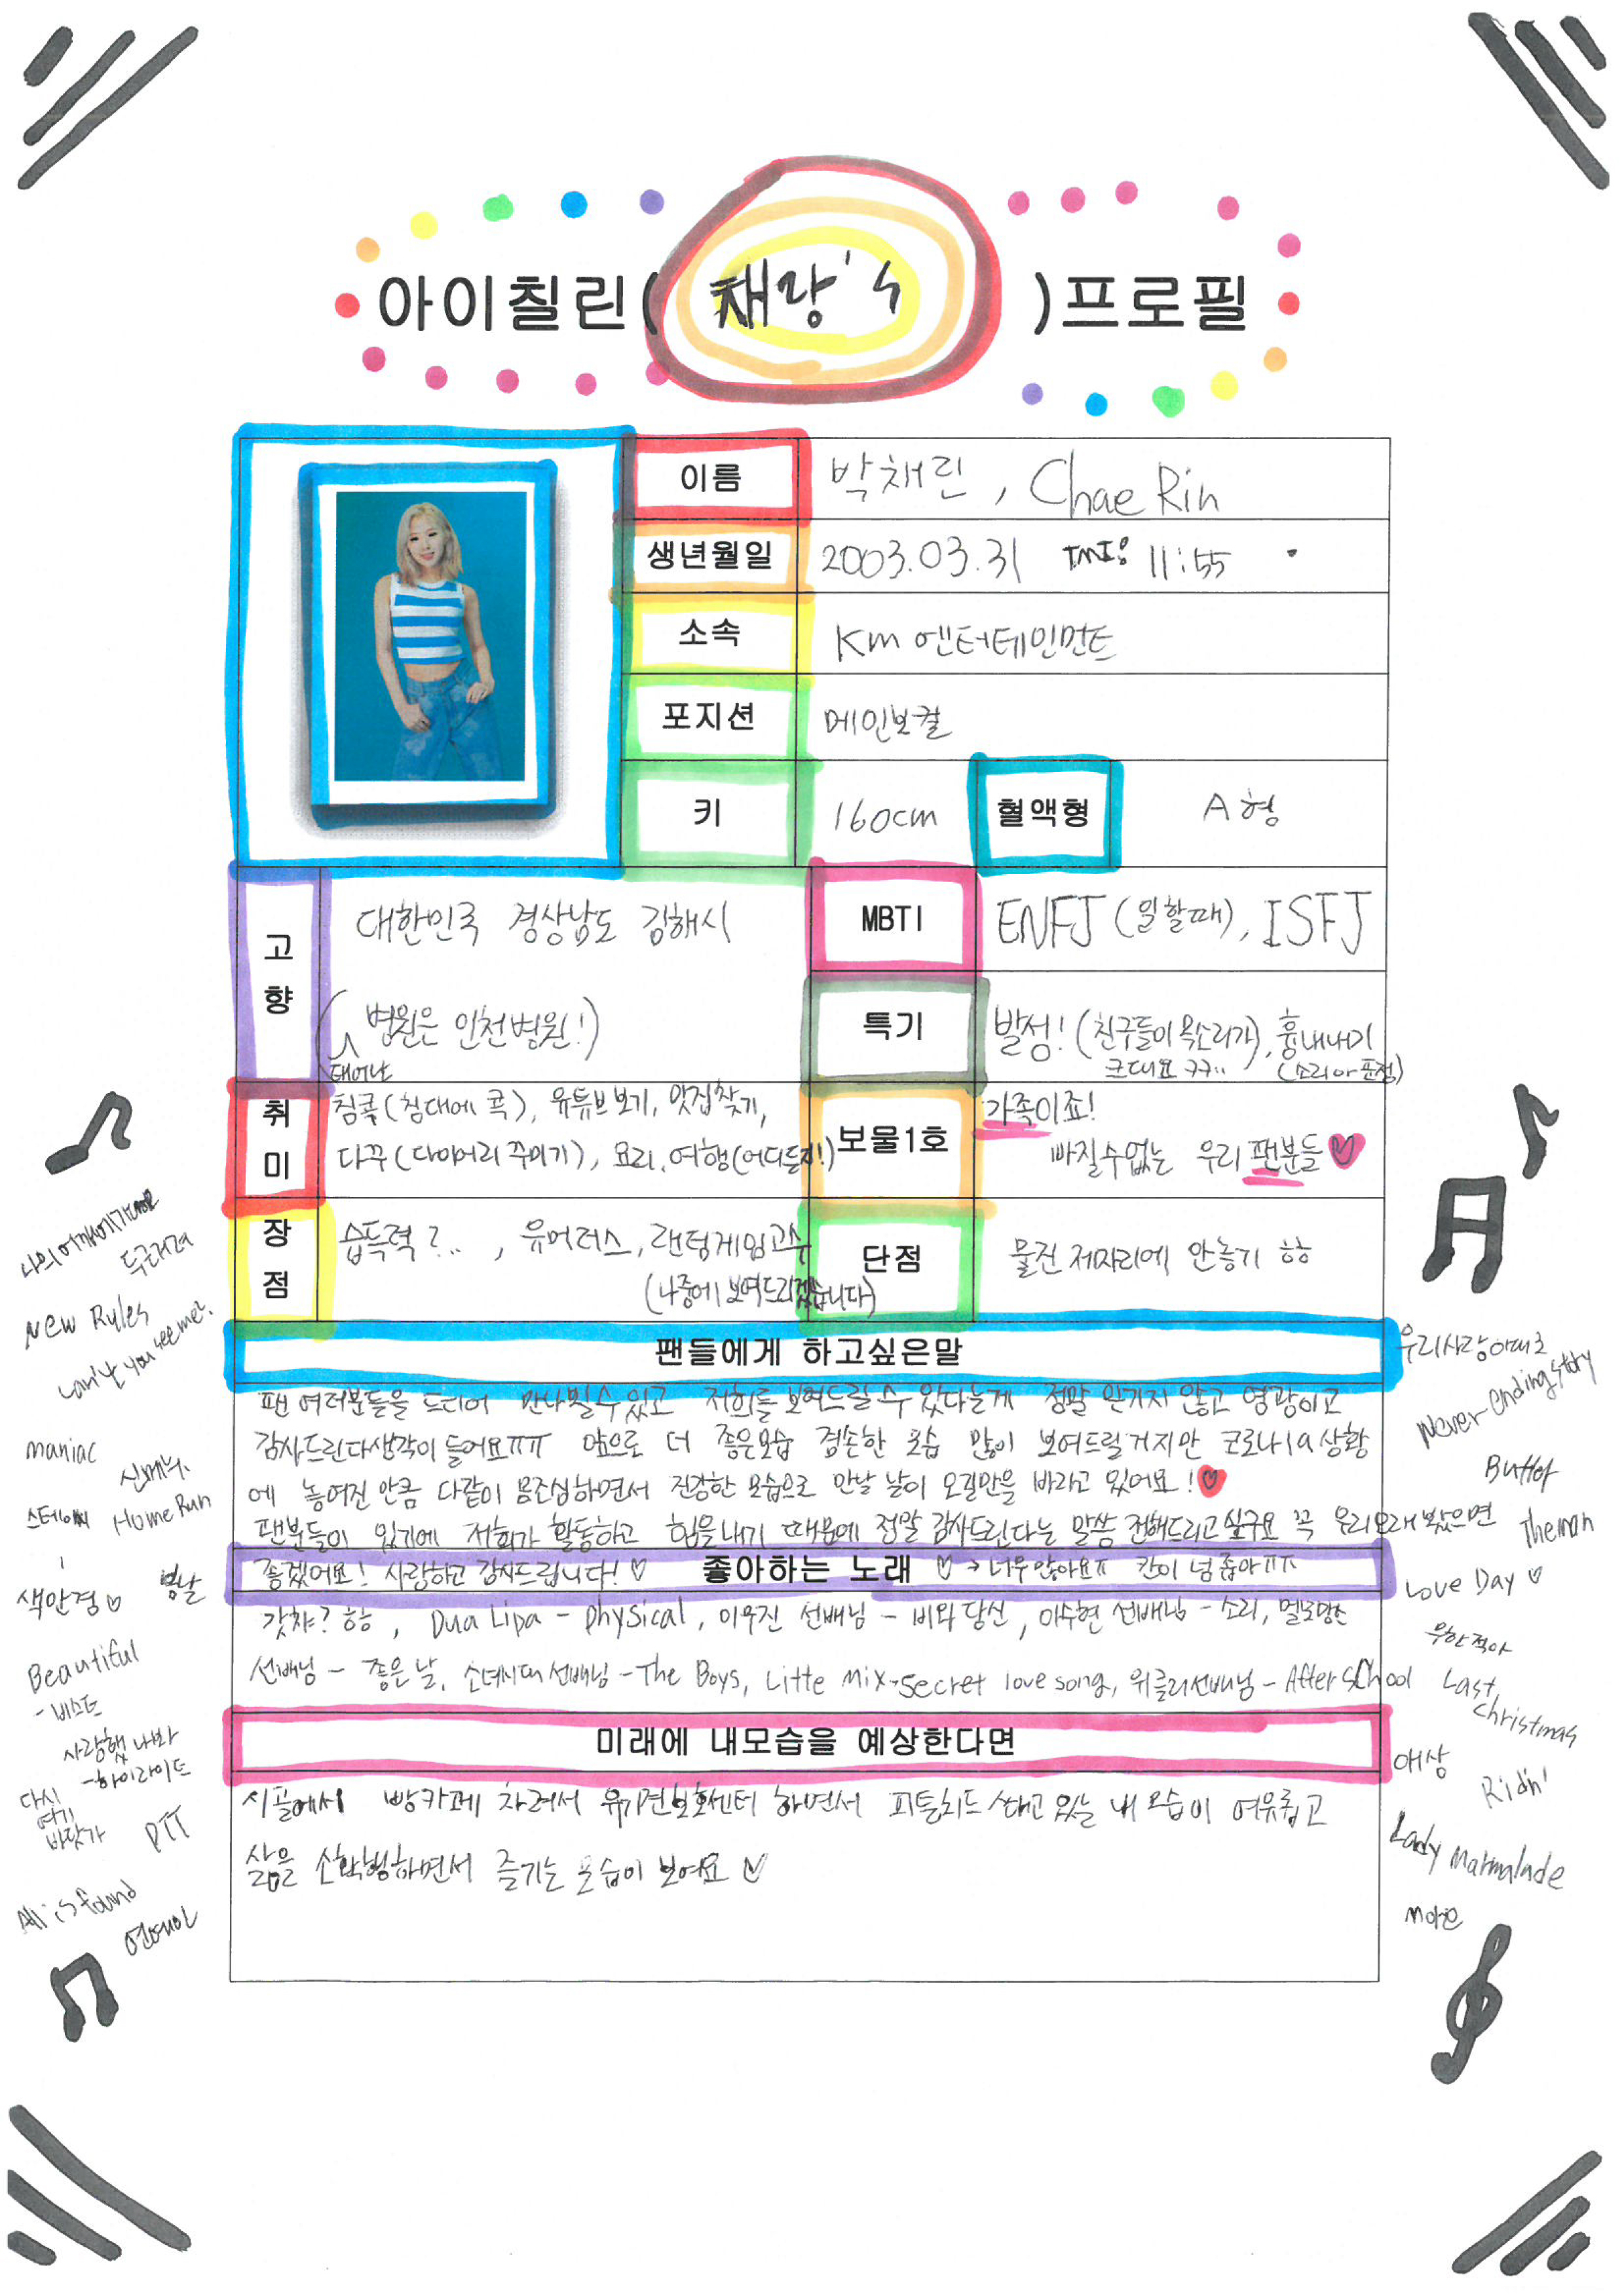 아이칠린( 채랑's )프로필
이름 박채린, Chae Rin
생년월일 2003.03.31 TMI: 11:55
소속 Km 엔터테인먼트
포지션 메인보컬
키 160cm 혈액형 A형
고향 대한민국 경상남도 김해시
(태어난 병원은 인천병원!)
MBTI ENFJ (일할때), ISFJ
특기 발성! (친구들이 목소리가 크대요 ㅋㅋ..), 흉내내기
취미 침콕(침대에 콕), 유튜브보기, 맛집찾기,
다꾸(다이어리 꾸미기), 요리, 여행(어디든지!)
보물1호 가족이죠!
빠질수없는 우리 팬분들♥
장점 습득력?.. , 유머러스, 랜덤게임고수
(나중에 보여드리겠습니다)
단점 물건 제자리에 안놓기 ㅎㅎ
팬들에게 하고싶은말
팬 여러분들을 드디어 만나뵐수있고 저희를 보여드릴수 있다는게 정말 믿기지 않고 영광이고
감사드린다생각이 들어요ㅠㅠ 앞으로 더 좋은모습 겸손한 모습 많이 보여드릴거지만 코로나19상황
에 놓여진 만큼 다같이 몸조심하면서 건강한 모습으로 만날 날이 오길만을 바라고 있어요!♥
팬분들이 있기에 저희가 활동하고 힘을내기 때문에 정말 감사드린다는 말씀 전해드리고싶구요 꼭 우리오래봤으면
좋겠어요! 사랑하고 감사드립니다!♡
좋아하는 노래 ♡→너무많아요ㅠ 칸이 넘 좁아ㅠㅠ
갓챠? ㅎㅎ, Dua Lipa - physical, 이무진 선배님 - 비와당신, 이수현 선배님 - 소리, 멜로망스
선배님 - 좋은날, 소녀시대 선배님 - The Boys, Litte Mix - Secret love song, 위클리선배님 - After School
미래에 내모습을 예상한다면
시골에서 빵카페 차려서 유기견보호센터 하면서 피톤치드 쐬고 있는 내 모습이 여유롭고
삶을 소확행하면서 즐기는 모습이 보여요♡
나의 어깨에 기대어요
두근거려
New Rules
maniac
신메뉴
스테이씨
Home Run
색안경♡
봄날
Beautiful
- 비스트
사랑했나봐
- 하이라이트
다시
여기
바닷가
PTT
All is found
연예인
우리사랑이대로
Never ending story
Butter
The man
Love Day ♡
무한적아
Last
Christmas
애상
Ridin'
Lady Marmalade
more